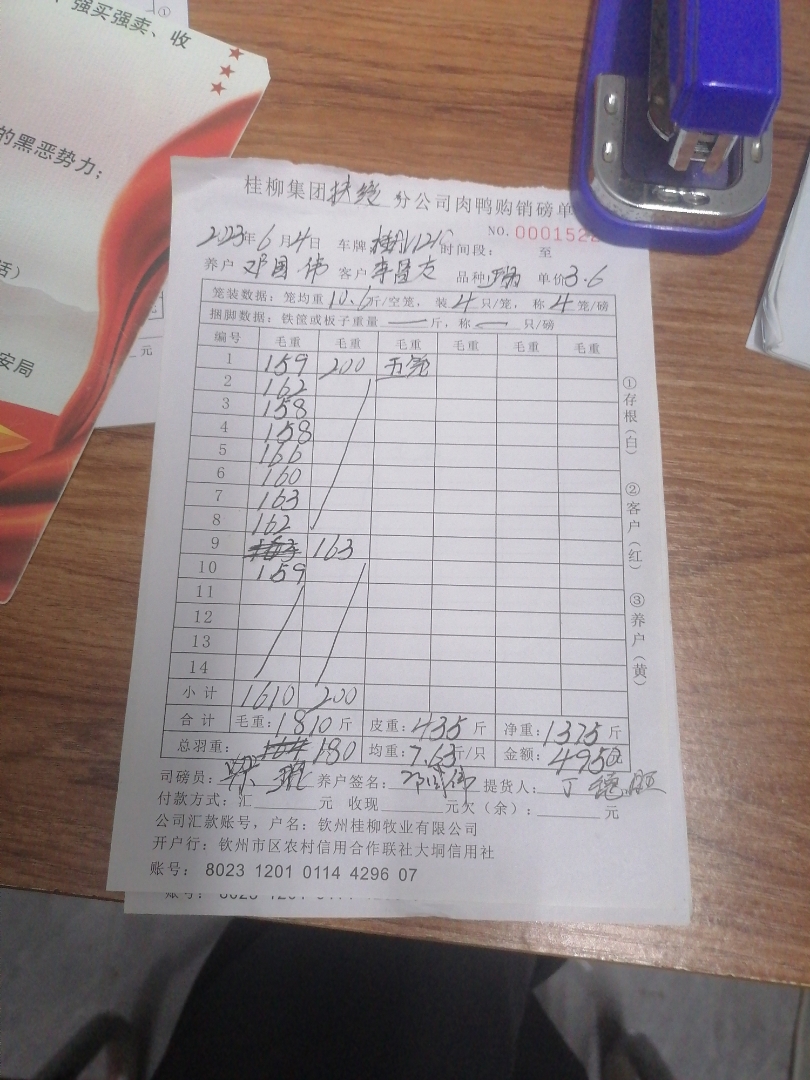 强买强卖、收
的黑恶势力；
话）
安局
元
桂柳集团扶绥分公司肉鸭购销磅单
NO. 0001522
2023年6月4日 车牌 时间段： 至
养户 邓国伟 客户 李隆克 品种 单价3.6
笼装数据：笼均重10.6斤/空笼，装4只/笼，称4笼/磅
捆脚数据：铁筐或板子重量 — 斤，称 — 只/磅
编号 毛重 毛重 毛重 毛重 毛重 毛重
1 159 200 五笼
2 162
3 158
4 158
5 166
6 160
7 163
8 162
9 163 163
10 159
11
12
13
14
小计 1610 200
合计 毛重：1810斤 皮重：435斤 净重：1375斤
总羽重：164 180 均重：7.63斤/只 金额：4950元
司磅员： 养户签名：邓国伟 提货人：
付款方式：汇 元 收现 元欠（余）： 元
公司汇款账号，户名：钦州桂柳牧业有限公司
开户行：钦州市区农村信用合作联社大垌信用社
账号： 8023 1201 0114 4296 07
①存根（白）
②客户（红）
③养户（黄）